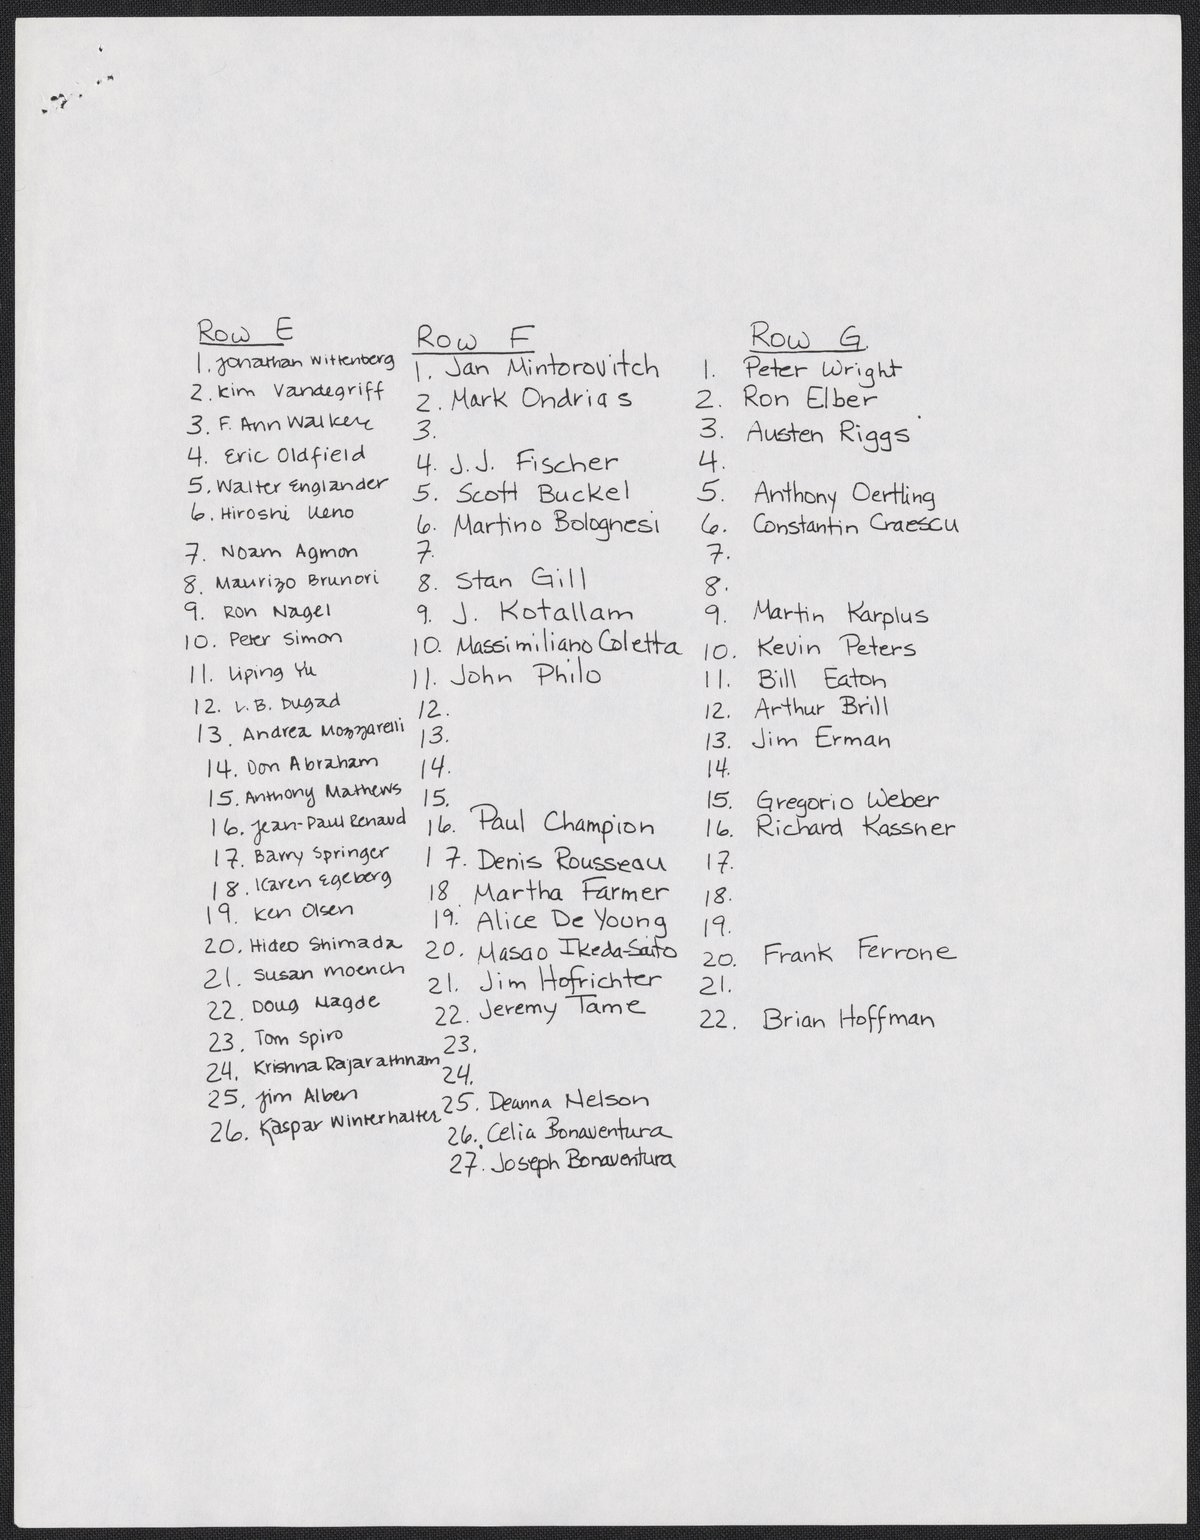 Row E
1. Jonathan Wittenberg
2. Kim Vandegriff
3. F. Ann Walker
4. Eric Oldfield
5. Walter Englander
6. Hiroshi Ueno
7. Noam Agmon
8. Maurizo Brunori
9. Ron Nagel
10. Peter Simon
11. Liping Yu
12. L.B. Dugad
13. Andrea Mozzarelli
14. Don Abraham
15. Anthony Mathews
16. Jean-Paul Renaud
17. Barry Springer
18. Karen Egeberg
19. Ken Olsen
20. Hideo Shimada
21. Susan Moench
22. Doug Magde
23. Tom Spiro
24. Krishna Rajarathnam
25. Jim Alben
26. Kaspar Winterhalter
Row F
1. Jan Mintorovitch
2. Mark Ondrias
3.
4. J.J. Fischer
5. Scott Buckel
6. Martino Bolognesi
7.
8. Stan Gill
9. J. Kotallam
10. Massimiliano Coletta
11. John Philo
12.
13.
14.
15.
16. Paul Champion
17. Denis Rousseau
18. Martha Farmer
19. Alice De Young
20. Masao Ikeda-Saito
21. Jim Hofrichter
22. Jeremy Tame
23.
24.
25. Deanna Nelson
26. Celia Bonaventura
27. Joseph Bonaventura
Row G
1. Peter Wright
2. Ron Elber
3. Austen Riggs
4.
5. Anthony Oertling
6. Constantin Craescu
7.
8.
9. Martin Karplus
10. Kevin Peters
11. Bill Eaton
12. Arthur Brill
13. Jim Erman
14.
15. Gregorio Weber
16. Richard Kassner
17.
18.
19.
20. Frank Ferrone
21.
22. Brian Hoffman